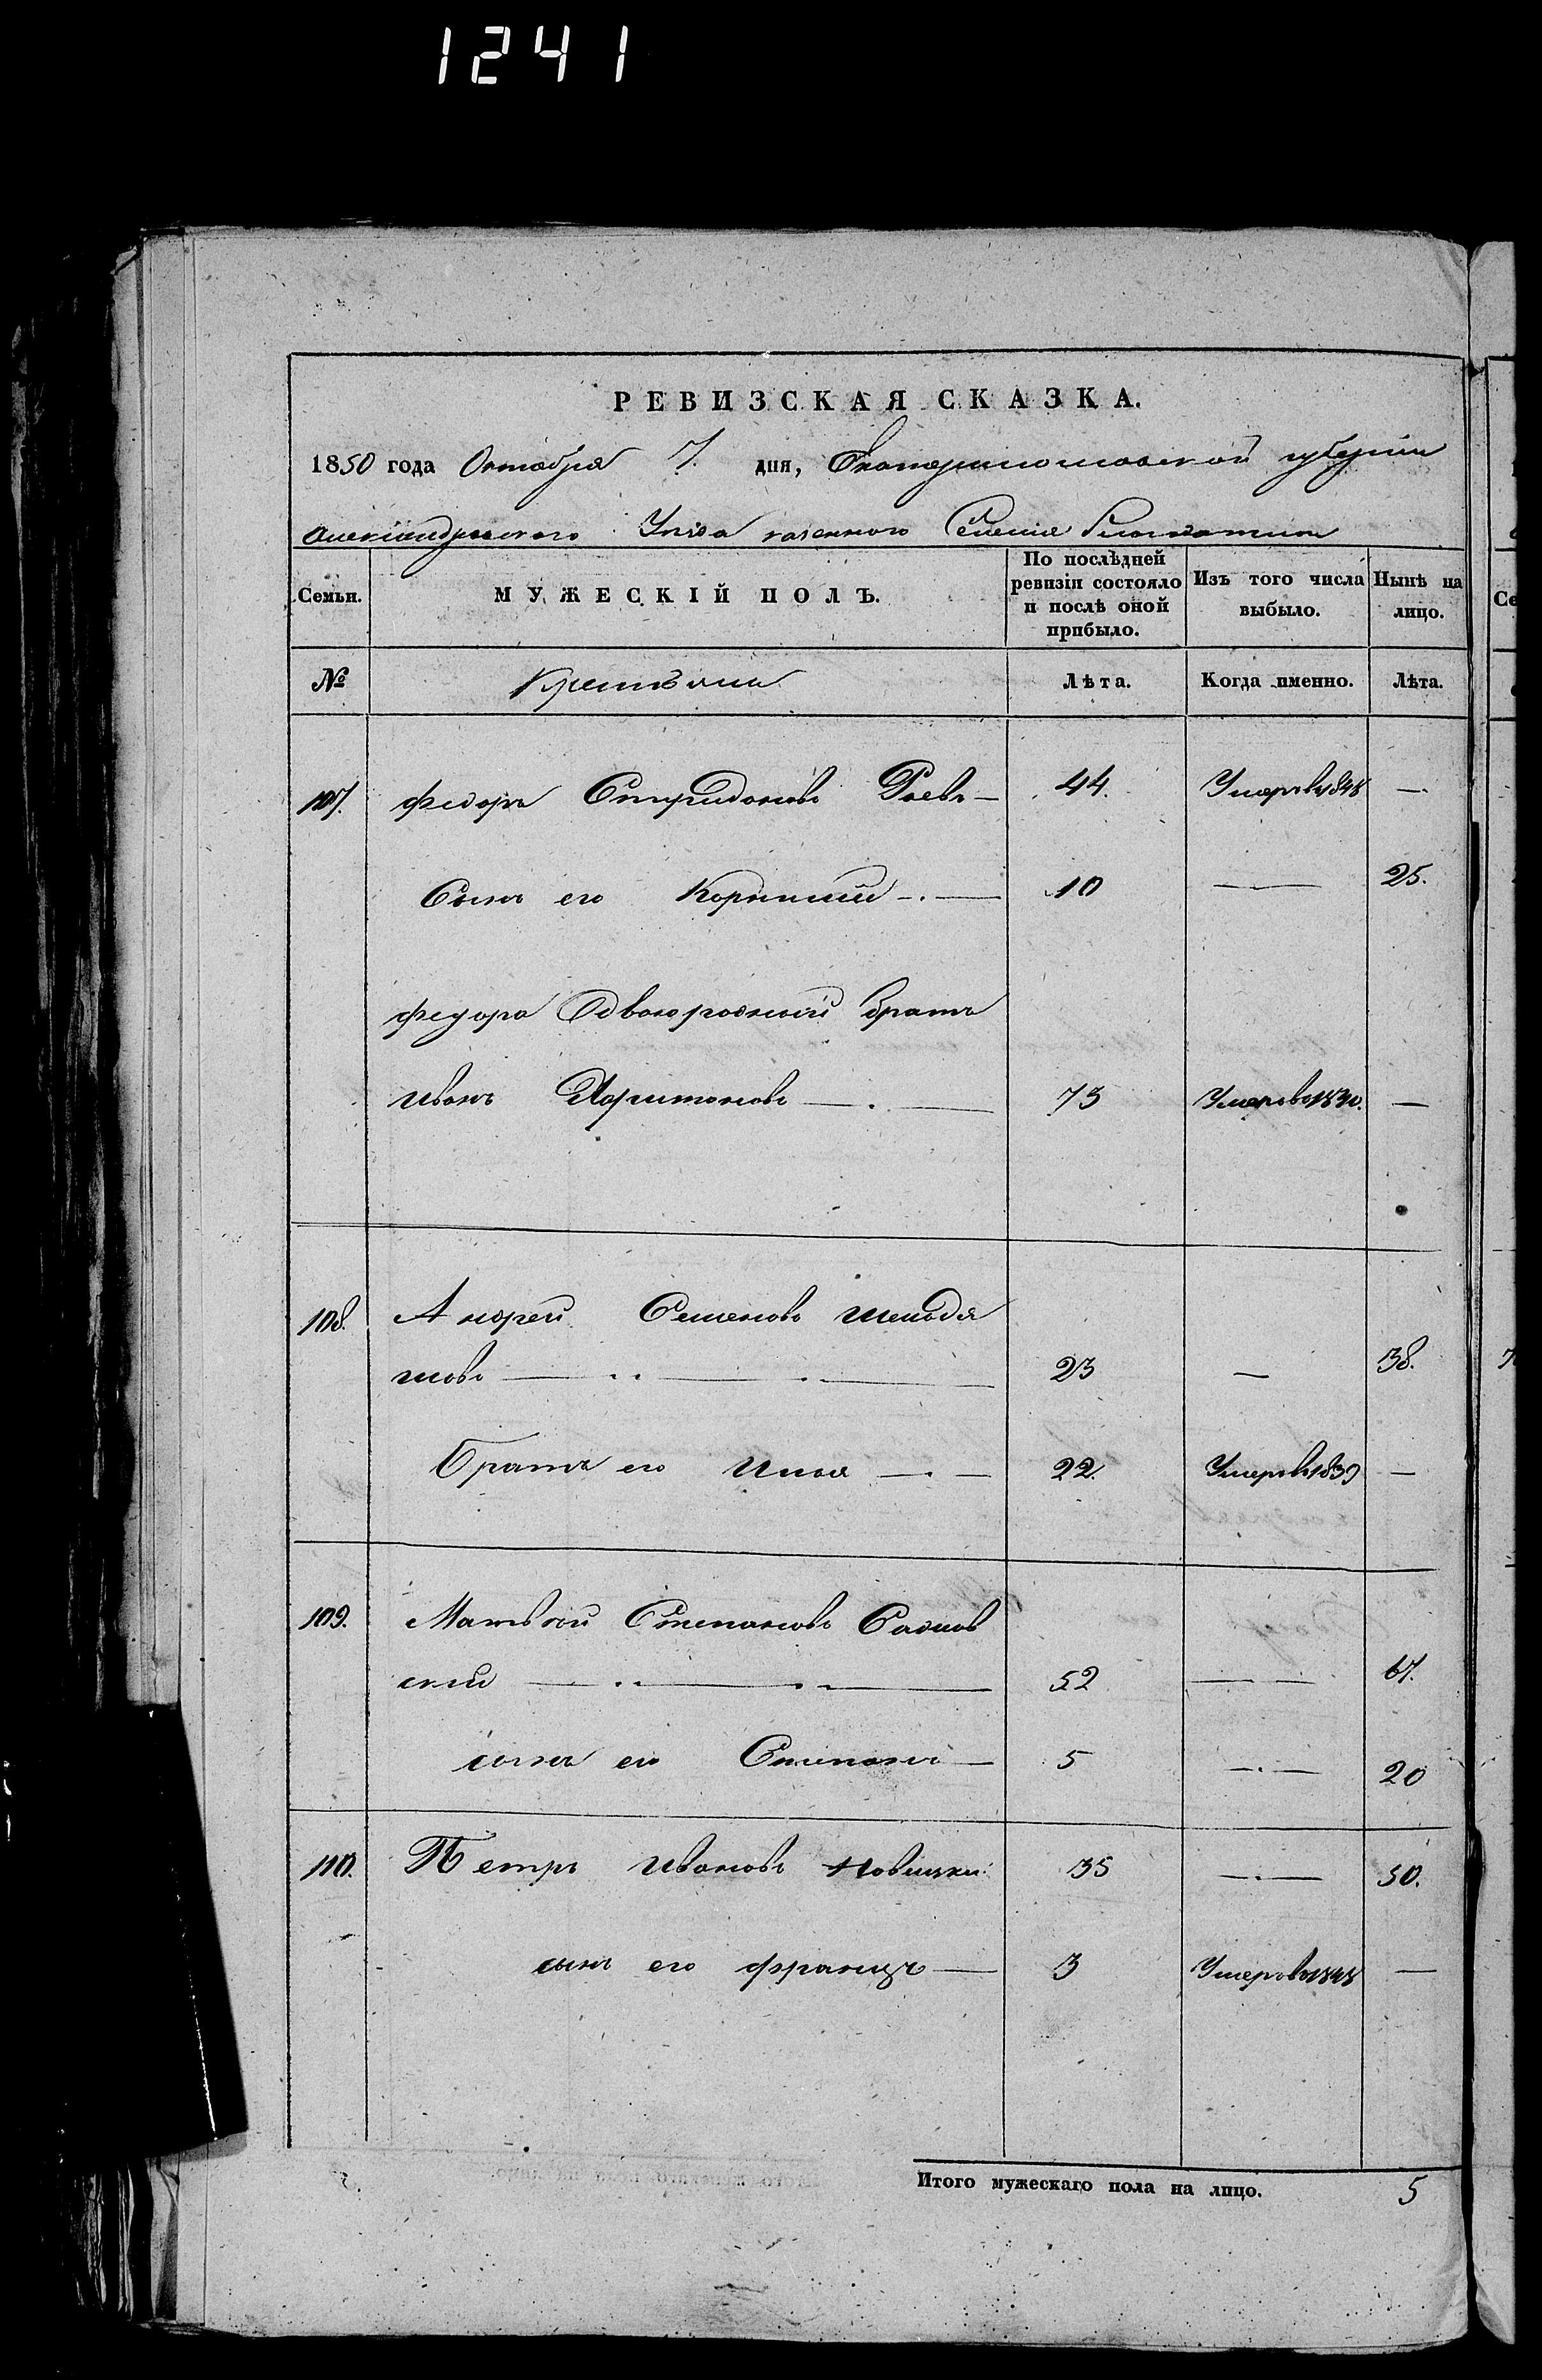 1241
РЕВИЗСКАЯ СКАЗКА.
1850 года Октября 7. дня, Екатеринославской губернии
Александровского Уезда казенного Селения
Семьи. МУЖЕСКІЙ ПОЛЪ. По послѣдней ревизіи состояло и послѣ оной прибыло. Изъ того числа выбыло. Нынѣ на лицо.
№ Крестьяне Лѣта. Когда именно. Лѣта.
107. Федоръ Спиридоновъ Раевъ — 44. Умеръ въ 1848 —
Сынъ его Корнилий — 10 — 25.
Федора Двоюродный братъ
Иванъ Харитоновъ — 73 Умеръ въ —
108. Андрей Семеновъ
новъ — 23 — 38.
Братъ его Илья — 22. Умеръ въ 1839 —
109. Матвѣй Степановъ Садов
ский — 52 — 67.
сынъ его Степанъ — 5 — 20
110. Петръ Ивановъ Новицкий 35 — 50.
сынъ его Францъ — 3 Умеръ въ 1848 —
Итого мужескаго пола на лицо. 5